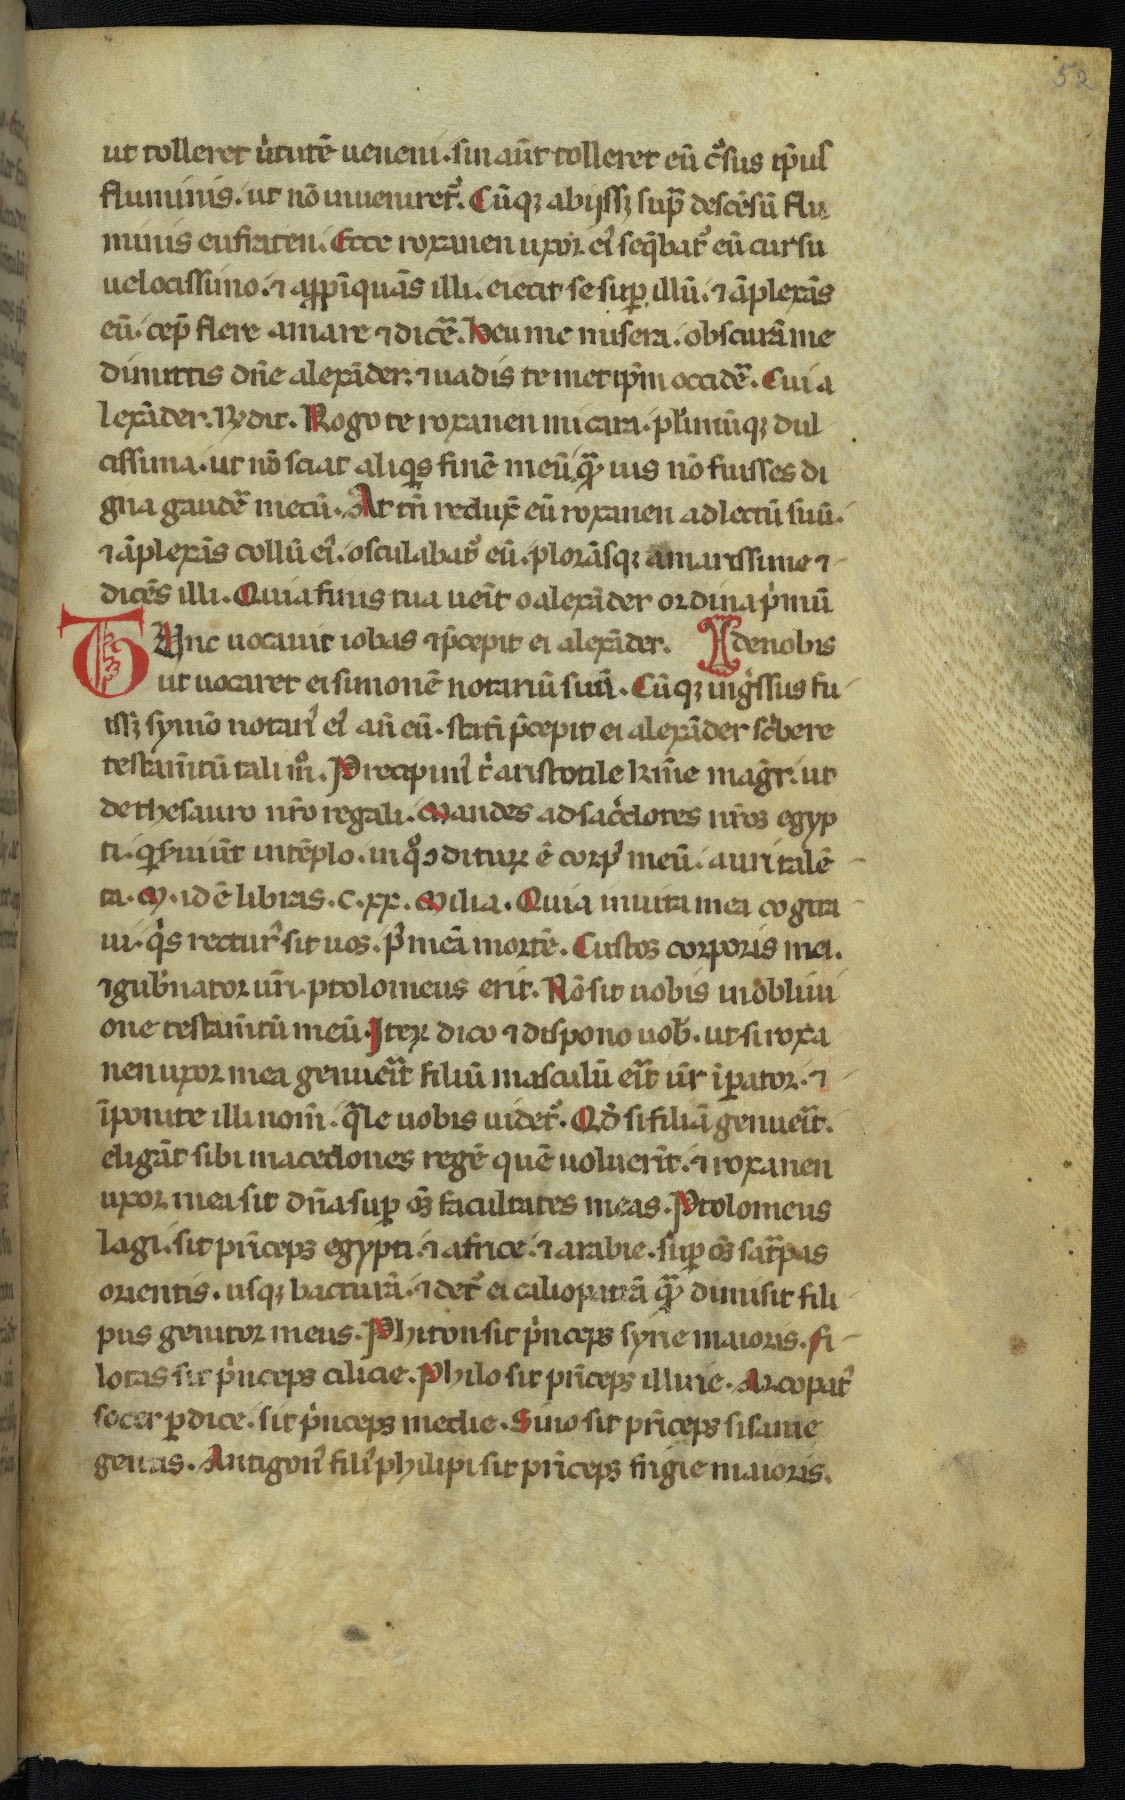 52
ut tolleret ũtutẽ ueneni. sin aũt tolleret eũ c̃sus ip̃ius
fluminis. ut nõ inueniret᷑. Cũq; abijss; sup̃ descẽsũ flu
minis eufraten. Ecce roxanen uxor ei᷒ seq̃bat᷑ eũ cursu
uelocissimo. ⁊ app̃iquãs illi. eiecit se sup illũ. ⁊ ãplexãs
eũ. cep̃ flere amare ⁊ dicẽ. heu me misera. obscurã me
dimittis dñe alexãder. ⁊ uadis te met ip̃m occidẽ. Cui a
lexãder. R̃dit. Rogo te roxanen mi cara. pl̃imũq; dul
cissima. ut nõ sciat aliq̃s finẽ meũ. q̃ uis nõ fuisses di
gna gaudẽ mecũ. At tñ redux̃ eũ roxanen ad lectũ suũ.
⁊ ãplexãs collũ ei᷒. osculabat᷑ eũ. plorãsq; amarissime ⁊
dicẽs illi. Quia finis tua ueñit o alexãder ordina p̃mũ
Tunc uocauit iobas ⁊ p̃cepit ei alexãder. I de nobis
ut uocaret ei simonẽ notariũ suũ. Cũq; ing̃ssus fu
iss; symõ notari᷒ ei᷒ añ eũ. statĩ p̃cepit ei alexãder sc̃bere
testam̃tũ tali m̊. Precipim᷒ t̃ aristotile k̃me mag̃r. ut
de thesauro nr̃o regali. Mandes ad sac̃dotes nr̃os egyp
ti. q̃ s̃uiũt in tẽplo. in q̊ ɔditur̃ ẽ corp᷒ meũ. auri talẽ
ta. M. id ẽ libras. C. xx. Milia. Quia in uita mea cogita
ui. q̃s rectur᷒ sit uos. p᷒ meã mortẽ. Custos corporis mei.
⁊ gub̃nator ur̃i. ptolomeus erit. Nõ sit uobis in obliui
one testam̃tũ meũ. Iter̃ dico ⁊ dispono uob̃. ut si roxa
nen uxor mea genueĩt filiũ masculũ eĩt ur̃ ĩpator. ⁊
ĩponite illi nom̃. q̃le uobis uidet᷑. Qd̃ si filiã genueĩt.
eligãt sibi macedones regẽ quẽ uoluerĩt. ⁊ roxanen
uxor mea sit dña sup om̃s facultates meas. Ptolomeus
lagi. sit prĩceps egypti. ⁊ africe. ⁊ arabie. sup om̃s satr̃pas
orientis. usq; bacturã. ⁊ det᷑ ei caliopatrã q̃ dimisit fili
pus genitor meus. Phiton sit p̃nceps syrie maioris. Fi
lotas sit p̃nceps cilicie. Philo sit prĩceps illirie. Arcopat᷒
socer pdice. sit p̃nceps medie. Sino sit prĩceps sisanie
gentis. Antigon᷒ fili᷒ philipi sit prĩceps frigie maioris.